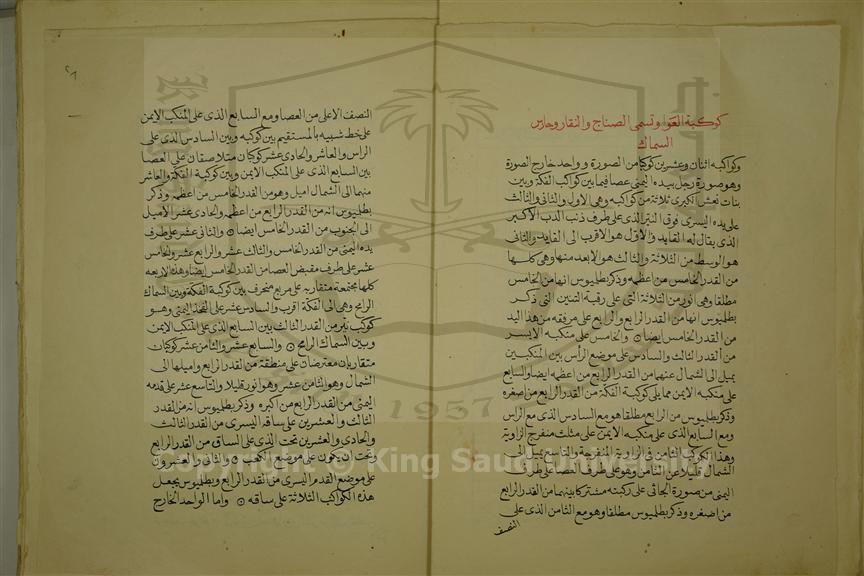 كوكبة العواء وتسمى الصناج والنقار وحارس
السماك
وكواكبه اثنان وعشرين كوكبا من الصورة وواحد خارج الصورة
وهو صورة رجل بيده اليمنى عصا فيما بين كواكب الفكة وبين
بنات نعش الكبرى ثلاثة من كواكبه وهى الاول والثانى والثالث
على يده اليسرى فوق النير الذى على طرف ذنب الدب الاكبر
الذى يقال له القايد والاول هو الاقرب الى القايد والثانى
هو الوسط من الثلاثة والثالث هو الابعد منها وهى كلها
من القدر الخامس من اعظمه وذكر بطلميوس انها من الخامس
مطلقا وهى انور من الثلاثة التى على رقبة التنين التى ذكر
بطلميوس انها من القدر الرابع والرابع على مرفقه من هذا اليد
من القدر الخامس ايضا والخامس على منكبه الايسر
من القدر الثالث والسادس على موضع الرأس بين المنكبين
يميل الى الشمال عنهما من القدر الرابع من اعظمه ايضا والسابع
على منكبه الايمن مما يلى كوكبة الفكة من القدر الرابع من اصغره
وذكر بطلميوس من الرابع مطلقا وهو مع السادس الذى مع الراس
ومع السابع الذى على منكبه الايمن على مثلث منفرج الزاوية
وهذا الكوكب الثامن فى الزاوية المنفرجة والتاسع يميل الى
الشمال قليلا عن الثامن وهو على طرف العصا على طرف
اليمنى من صورة الجاثى على ركبته مشتركا بينهما من القدر الرابع
من اصغره وذكر بطلميوس مطلقا وهو مع الثامن الذى على
النصف
النصف الاعلى من العصا ومع السابع الذى على المنكب الايمن
على خط شبيه بالمستقيم بين كوكبه وبين السادس الذى على
الراس والعاشر والحادى عشر كوكبان متلاصقان على العصا
بين السابع الذى على المنكب الايمن وبين كوكبة الفكة والعاشر
منهما الى الشمال اميل وهو من القدر الخامس من اعظمه وذكر
بطلميوس انه من القدر الرابع من اعظمه والحادى عشر الاميل
الى الجنوب من القدر الخامس ايضا والثانى عشر على طرف
يده اليمنى من القدر الخامس والثالث عشر والرابع عشر والخامس
عشر على طرف مقبض العصا من القدر الخامس ايضا وهذه الاربعه
كلها مجتمعة متقاربه على مربع منحرف بين كوكبة الفكة وبين السماك
الرامح وهى الى الفكة اقرب والسادس عشر على الفخذ اليمنى وهو
كوكب نير من القدر الثالث بين السابع الذى على المنكب الايمن
وبين السماك الرامح والسابع عشر والثامن عشر كوكبان
متقاربان معترضان على منطقة من القدر الرابع واميلها الى
الشمال وهو الثامن عشر وهو انور قليلا والتاسع عشر على قدمه
اليمنى من القدر الرابع من اكبره وذكر بطلميوس انه من القدر
الثالث والعشرين على ساقه اليسرى من القدر الثالث
والحادى والعشرين تحت الذى على الساق من القدر الرابع
ان يكون على موضع الكعب والثانى والعشرون
على موضع القدم اليسرى من القدر الرابع وبطلميوس يجعل
هذه الكواكب الثلاثة على ساقه واما الواحد الخارج
Copyright © King Saud University
1957